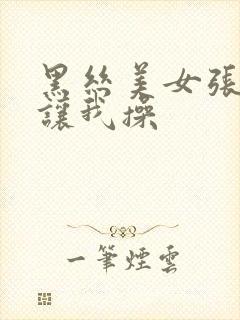 黑絲美女張
讓我操
一筆煙雲